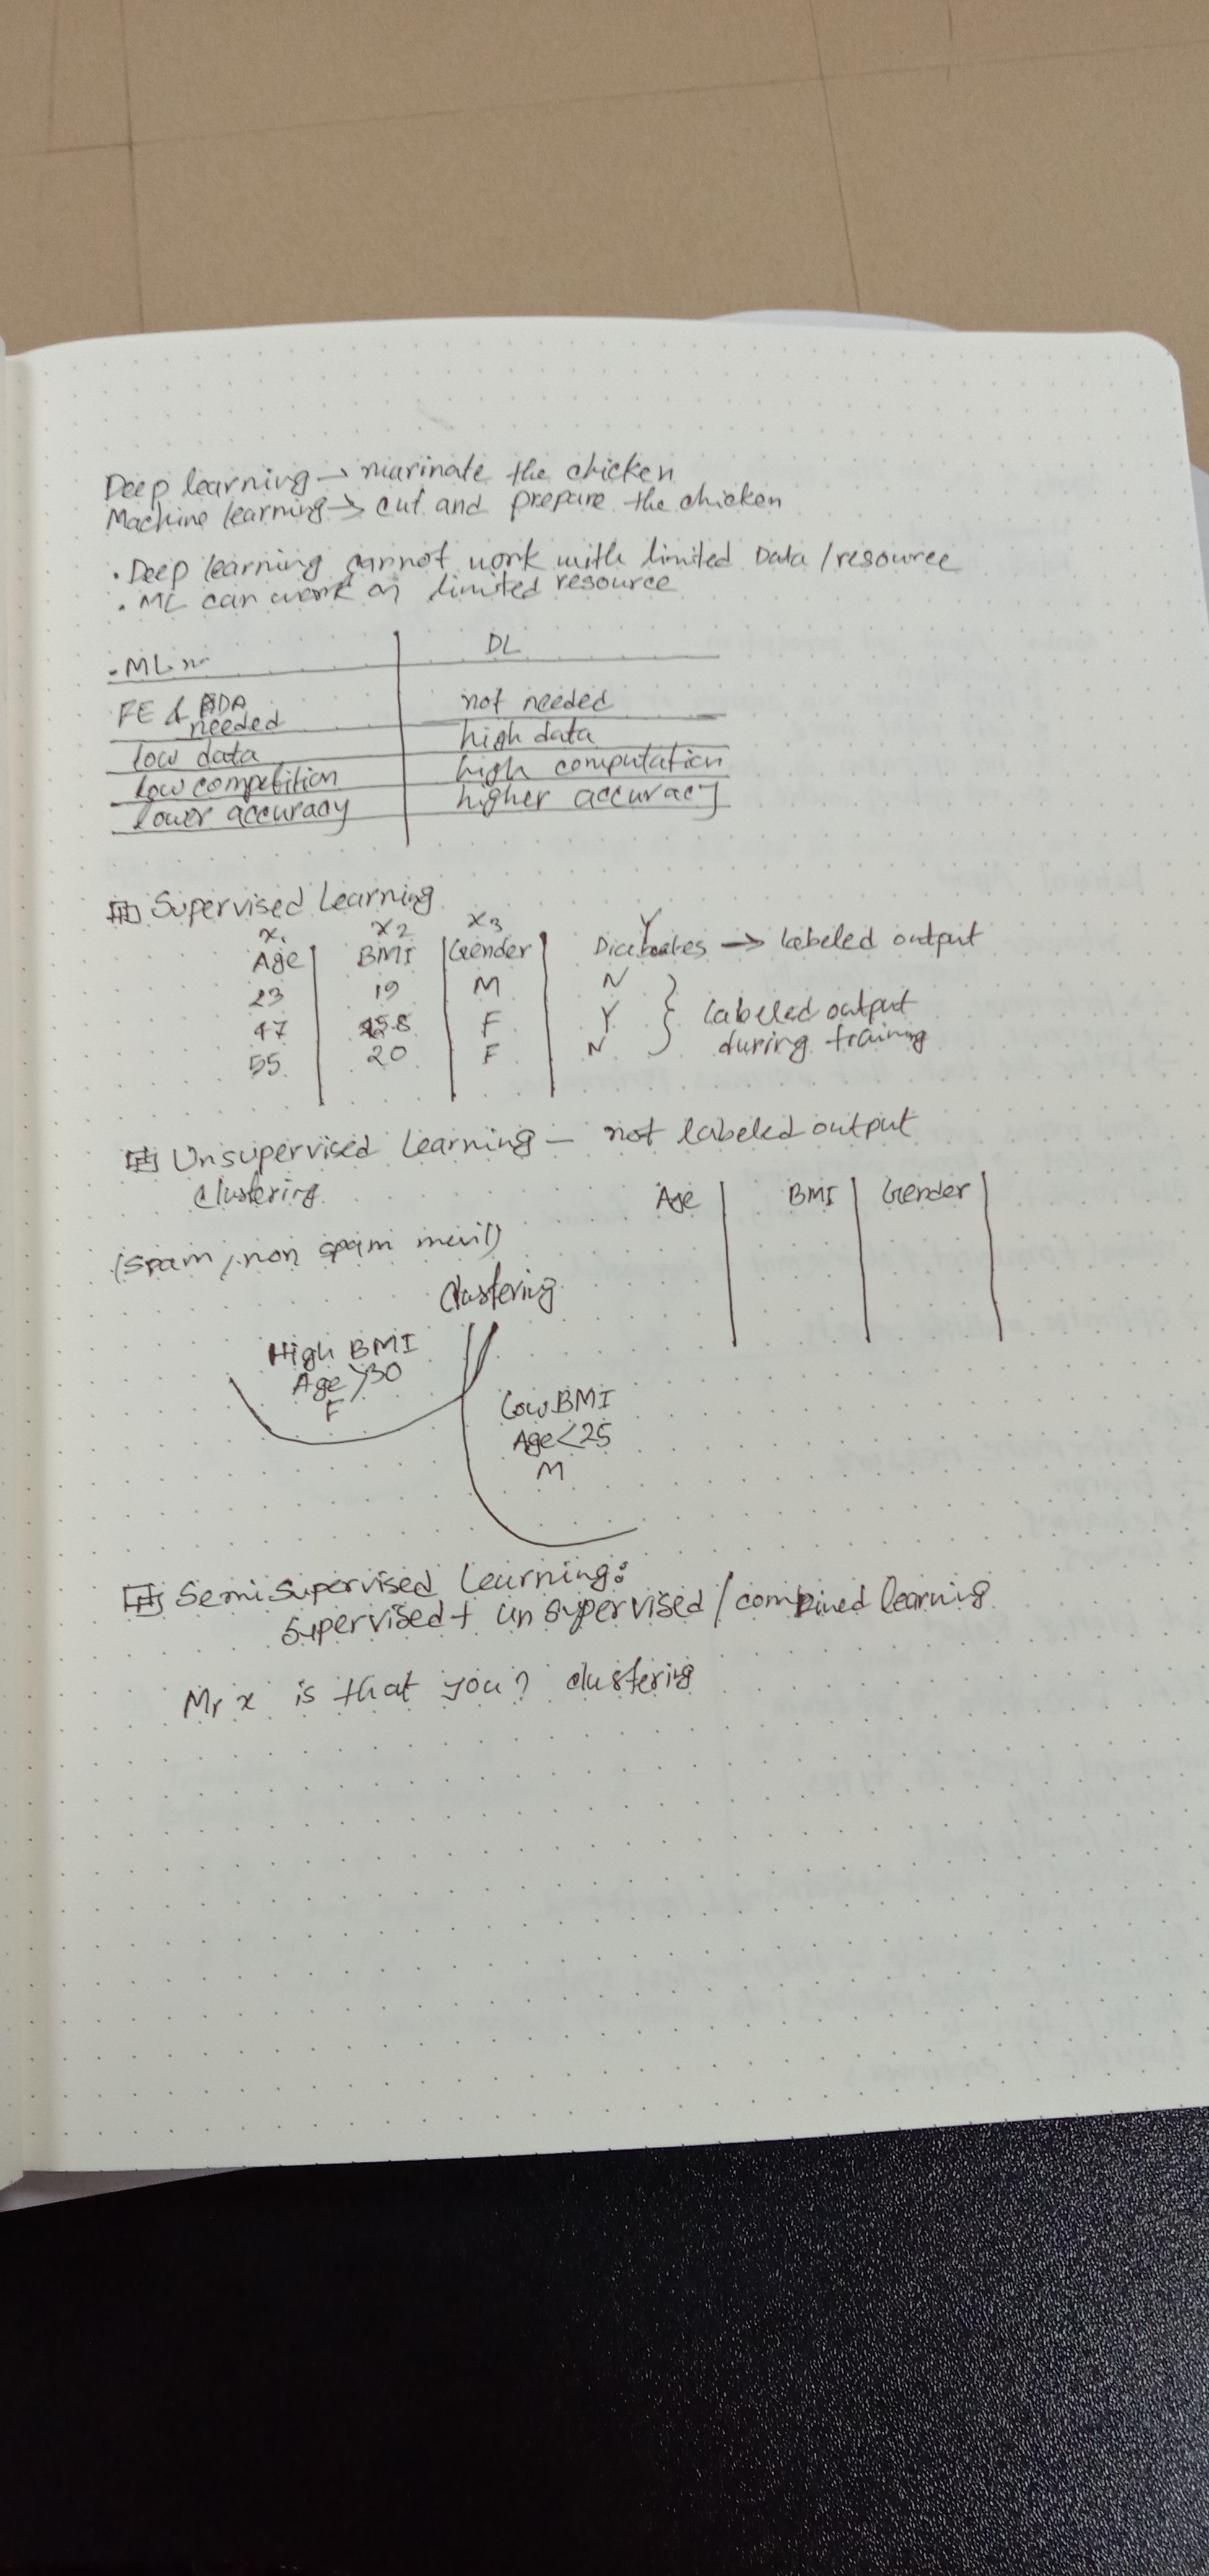 Deep learning → marinate the chicken
Machine learning → cut and prepare the chicken
• Deep learning cannot work with limited Data / resource
• ML can work on limited resource
ML DL
FE & EDA needed not needed
low data high data
low competition high computation
lower accuracy higher accuracy
Supervised Learning
x₁ x₂ x₃ Y
Age BMI Gender → labeled output
23 19 M N
47 F Y } labeled output
55 20 F N during training
Unsupervised Learning — not labeled output
Clustering Age BMI Gender
(spam, non spam mail)
Clustering
High BMI
Age >30
F
Low BMI
Age <25
M
Semi Supervised Learning:
Supervised + un supervised / combined learning
Mr x is that you? clustering